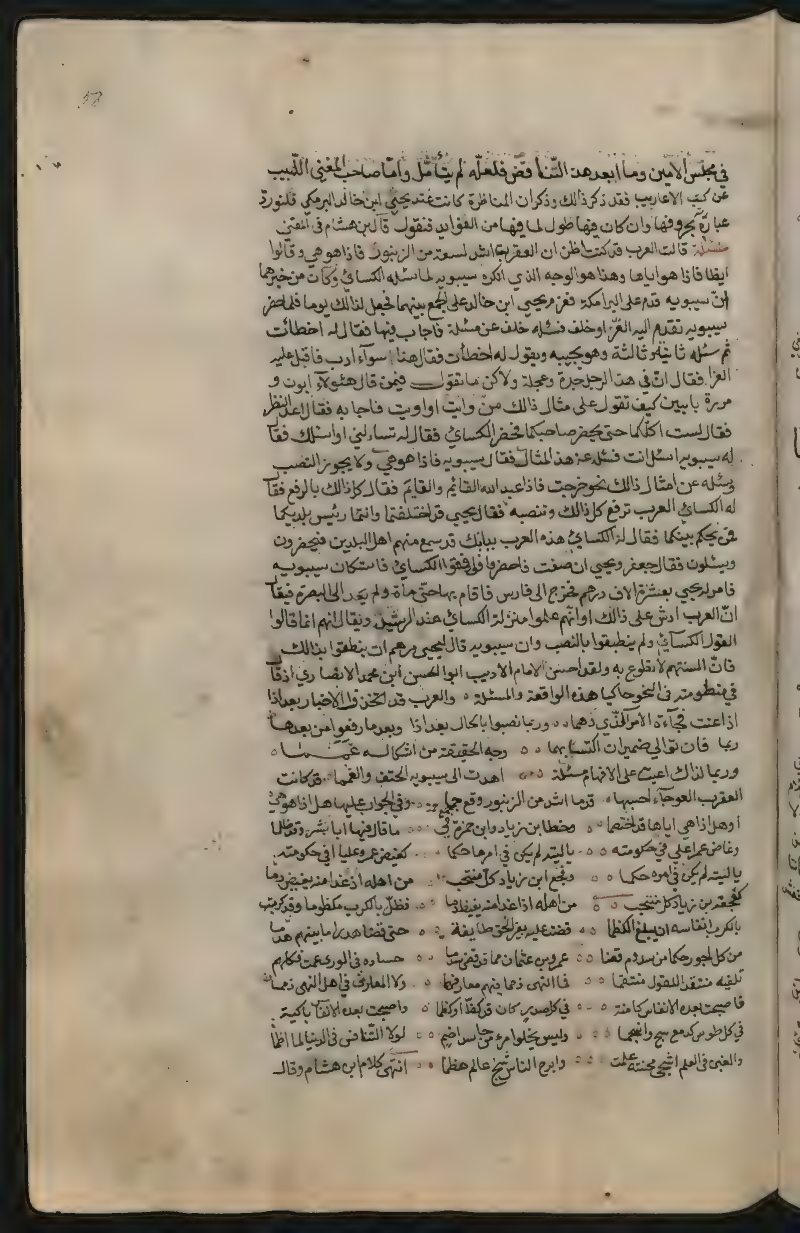 في مجلس الامين وما ابعد هذا التناقض فلعله لم يتأمل وأما صاحب المغني اللبيب
عن كتب الاعاريب فقد ذكر ذالك وذكر ان المناظرة كانت عند يحيى ابن خالد البرمكي فلنورد
عبارته بحروفها وان كان فيها طول لما فيها من الفوايد فنقول قال ابن هشام في المغني
مسئلة قالت العرب قد كنت اظن ان العقرب اشد لسعة من الزنبور فاذا هو هي وقالوا
ايظا فاذا هو اياها وهذا هو الوجه الذي انكره سيبويه لما سئله الكسائي وكان من خبرهما
ان سيبويه قدم على البرامكة فعزم يحيى ابن خالد على الجمع بينهما فجعل لذالك يوما فلما حضر
سيبويه تقدم اليه الفرا وخلف فسئله خلف عن مسئلة فاجاب فيها فقال له اخطأت
ثم سئله ثانية وثالثة وهو يجيبه ويقول له اخطأت فقال هذا سوء ادب فاقبل عليه
الفرا فقال ان في هذا الرجل حدة وعجلة ولاكن ما تقول فيمن قال هئولاء ابون و
مررت بابين كيف تقول على مثال ذالك من وايت او اويت فاجابه فقال اعد النظر
فقال لست اكلمكما حتى يحضر صاحبكما فحضر الكسائي فقال له تسئلني او اسئلك فقا
له سيبويه اسئل انت فسئله عن هذا المثال فقال سيبويه فاذا هو هي ولا يجوز النصب
وسئله عن امثال ذالك نحو خرجت فاذا عبد الله القائم والقايم فقال كل ذالك بالرفع فقا
له الكسائي العرب ترفع كل ذالك وتنصبه فقال يحيى قد اختلفتما وانتما رئيس بلديكما
فمن يحكم بينكما فقال له الكسائي هذه العرب ببابك قد سمع منهم اهل البلدين فيحضرون
ويسئلون فقال جعفر ويحيى انصفت فاحضروا فوافقوا الكسائي فاستكان سيبويه
فامر له يحيى بعشرة الاف درهم فخرج الى فارس فاقام بها حتى مات ولم يعد الى البصرة فيقا
ان العرب ارش على ذالك او انهم علموا منزلة الكسائي عند الرشيد ويقال انهم انما قالوا
القول الكسائي ولم ينطقوا بالنصب وان سيبويه قال ليحيى مرهم ان ينطقوا بذالك
فان السنتهم لا تطوع به ولقد احسن الامام الاديب ابو الحسن ابن محمد الانصاري اذ قا
في منظومته في النحو حاكيا هذه الواقعة والمسئلة ٥ والعرب قد تحذف الاخبار بعد اذا
اذا عنت فجاءة الامر الذي دهما ٥٥ وربما نصبوا بالحال بعد اذا وبعد ما رفعوا من بعدها
ربما فان توالى ضميران اكتسا بهما ٥ ٥ وجه الحقيقة من اشكاله غمما ٥
وربما لذاك اعيت على الافهام مسئلة ٥٥٥ اهدت الى سيبويه الحتف والغمما قد كانت
العقرب العوجاء احسبها ٥ قدما اشد من الزنبور وقع حما ٥٥ وفي الجواب عليها هل اذا هو هي
او هل اذا هي اياها قد اختصما ٥ ٥ وخطا ابن زياد وابن حمزة في ٥٥ ما قال فيها ابا بشر وقد ظلما
وغاض عمرا علي في حكومته ٥ ٥ يا ليته لم يكن في امرها حكما ٥٥ كغيض عمرو عليا في حكومته
يا ليته لم يكن في امره حكما ٥ ٥ وفجع ابن زياد كل منتحب ٥٥ من اهله اذ غدا منه يفيض دما
كفجعة بن زياد كل منتحب ٥ ٥ من اهله اذ غدا منه يفيض دما ٥٥ فظل بالكرب مكظوما وقد كربت
بالكرب انفاسه ان يبلغ الكظما ٥ ٥ قضت عليه بغير الحق طايفة ٥ ٥ حتى قضى هدرا ما بينهم هدما
من كل اجور حكما من سدوم قضا ٥٥ عمرو بن عثمان مما قد قضى سدما ٥٥ حساده في الورى عمت فكلهم
تلفيه منتقدا للقول منتقما ٥٥ فما النهى ذمما فيهم معارفها ٥٥ ولا المعارف في اهل النهى ذمما
فاصبحت بعده الانفاس كامنة ٥ ٥ في كل صدر كان قد كظ او كظما ٥ واصبحت بعده الانقاس باكية
في كل طرس كدمع سح وانسجما ٥٥ وليس يخلوا مرء من حاسد اضم ٥٥ لولا التنافس في الدنيا لما اظما
والغبن في العلم اشجى محنة علمت ٥٥ وابرح الناس شجوا عالم هظما ٥٥ انتهى كلام ابن هشام وقال